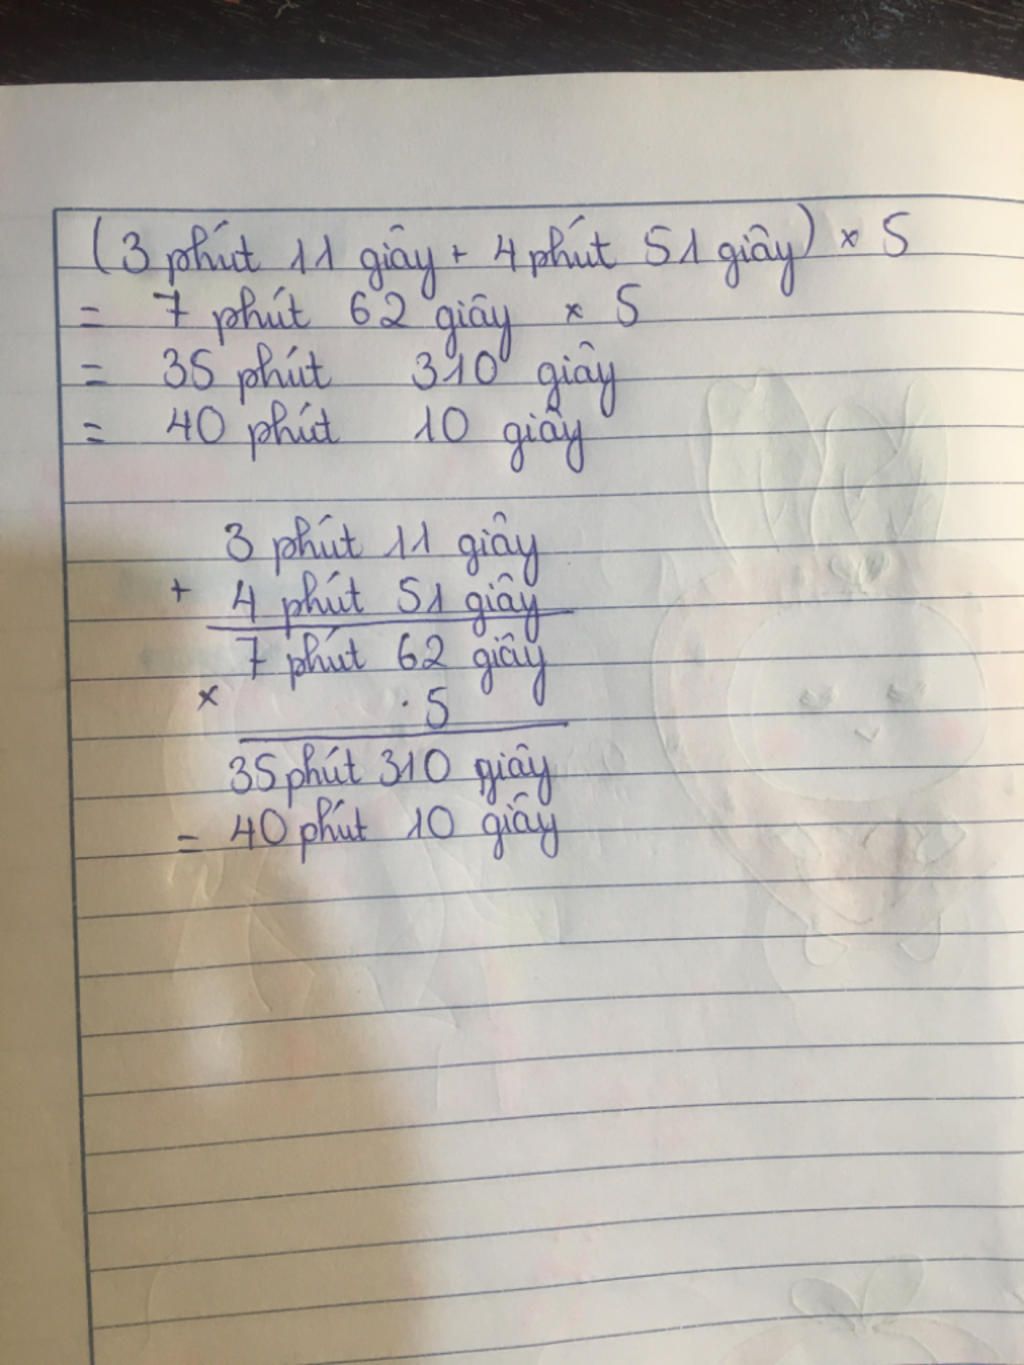 (3 phút 11 giây + 4 phút 51 giây) × 5
= 7 phút 62 giây × 5
= 35 phút 310 giây
= 40 phút 10 giây
3 phút 11 giây
+ 4 phút 51 giây
7 phút 62 giây
× 5
35 phút 310 giây
= 40 phút 10 giây